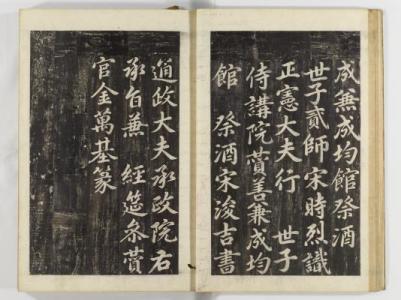 成兼成均館祭酒
世子貳師宋時烈識
正憲大夫行 世子
侍講院贊善兼成均
館 祭酒宋浚吉書
通政大夫承政院右
承旨兼 經筵參贊
官金萬基篆